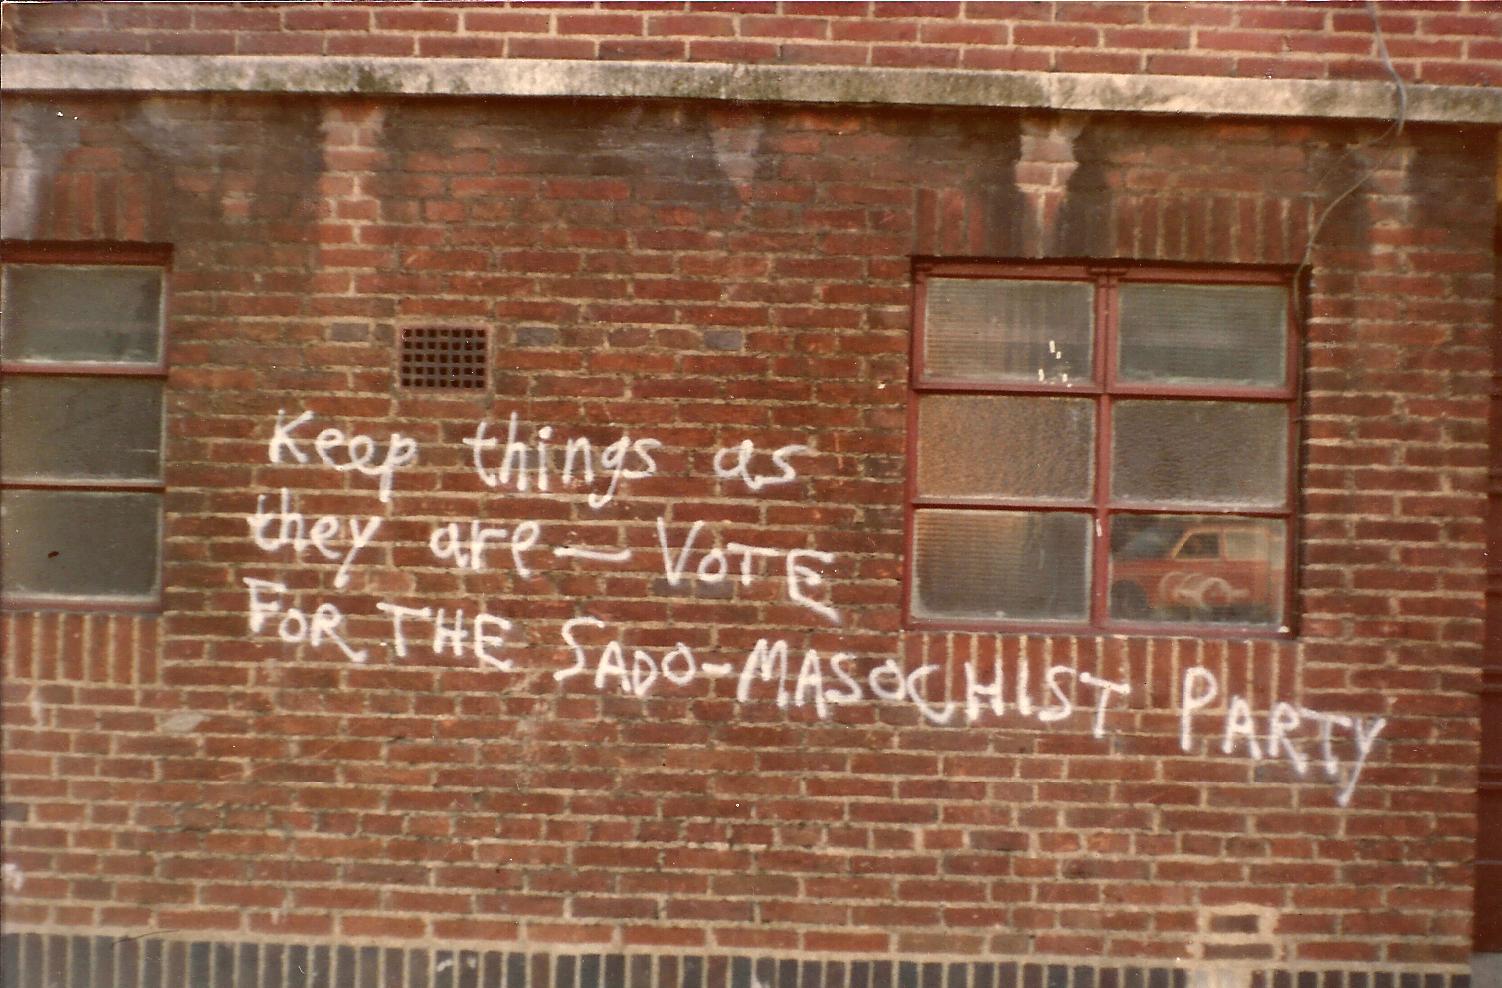 Keep things as
they are — VOTE
FOR THE SADO-MASOCHIST PARTY